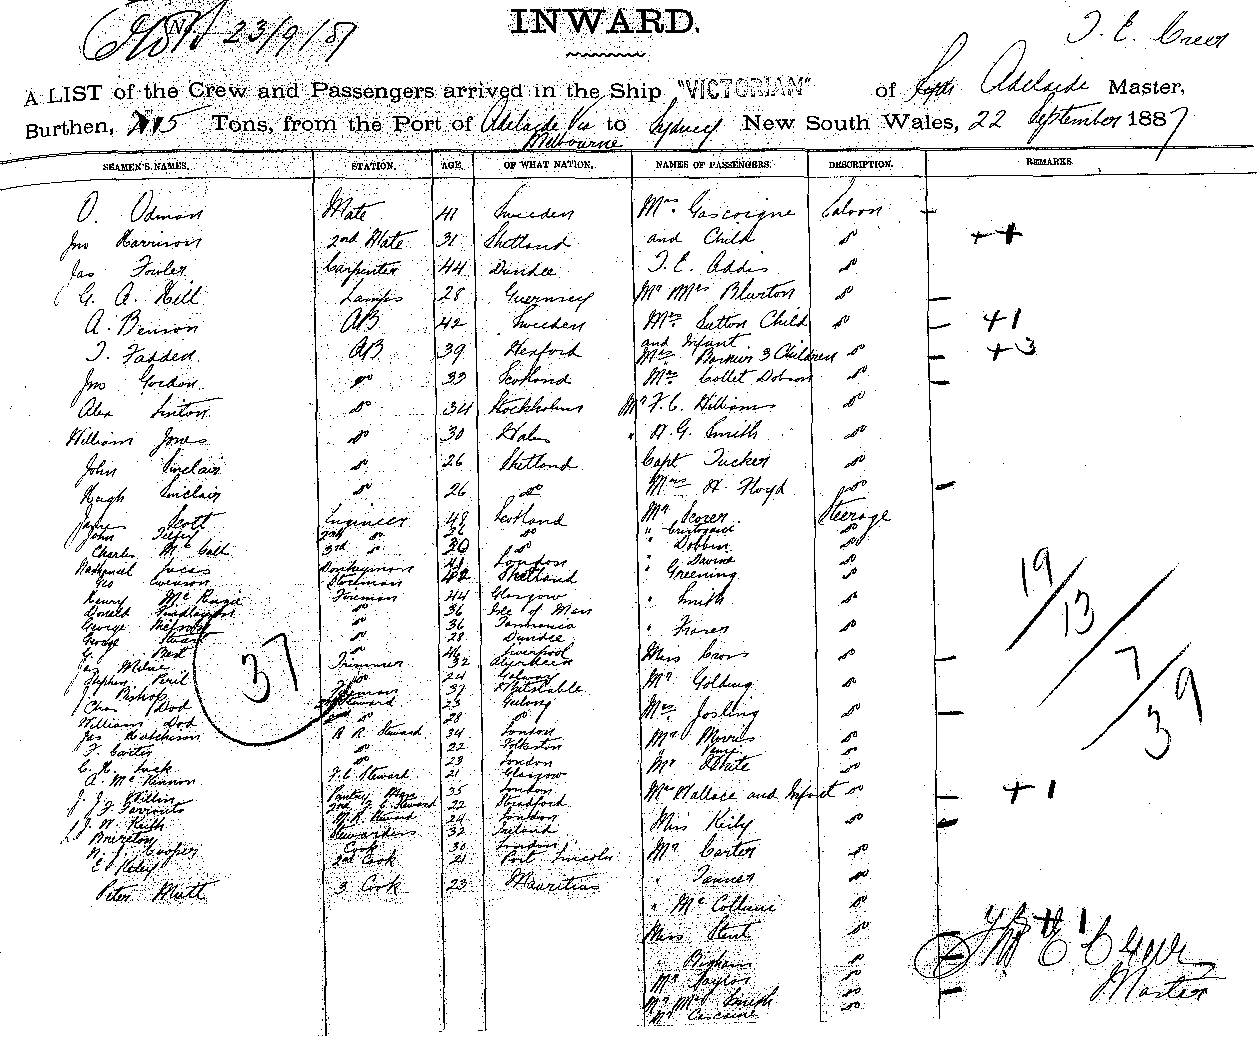 23/9/87
INWARD.
T. E. Creer
A LIST of the Crew and Passengers arrived in the Ship "VICTORIAN" of Port Adelaide Master,
Burthen, Tons, from the Port of Adelaide Via Melbourne to Sydney New South Wales, 22 September 1887
SEAMEN'S NAMES. STATION. AGE. OF WHAT NATION. NAMES OF PASSENGERS. DESCRIPTION. REMARKS.
O. Odman Mate 41 Sweden Mrs. Gascoigne Saloon
Jno Harrison 2nd Mate 31 Shetland and Child do
Jas Fowler Carpenter 44 Dundee T. E. Addis do
G. A. Hill Lamps 28 Guernsey Mr Mrs Blurton do
A. Benson AB 42 Sweden Mrs. Sutton Child do +1
and Infant
T. Fadden AB 39 Hexford Mrs 3 Children do +3
Jno Gordon do 33 Scotland Mrs Collet Dobson do
Alex Linton do 34 Stockholm Mr F. C. Williams do
William Jones do 30 Wales " H. G. Smith do
John Sinclair do 26 Shetland Capt Tucker do
Hugh Sinclair do 26 do Mrs H. Floyd do
James Scott Engineer 48 Scotland Mr Scorer Steerage
John 2nd do do
Charles McCall 3rd do 30 do " Dobbin do
Nathaniel Lucas Donkeyman London " Davies
Geo Swenson Storeman Shetland " Greening do
Henry Fireman 44 Glasgow
Donald do 36 Isle of Man " Smith do
George do 36 Tasmania
George Stuart do 28 Dundee " Fraser do
G. do 46 Liverpool
Jas Milne Trimmer 32 Aberdeen Miss Cross do
Stephen do 24 Galway
J. Bishop 37 Whitstable Mr Golding do
Chas Dod Steward 23 Geelong
William Dod do 28 do Mrs Josling do
Jas Hutchison R. R. Steward 34 London Mr Morris do
F. Carter do 22 Folkston
C. H. Tuck do 23 London Mr White do
A. McKinnon F. C. Steward 21 Glasgow
Pantry Man 35 London Mrs Wallace and Infant do +1
2nd F. C. Steward 22 Stradford
J. W. Keith M. R. Steward 24 London Miss Kiely do
Brereton Stewardess 32 Ireland
W. J. Cooper Cook 30 London Mr Carter do
E. Kelly 2nd Cook 21 Port Lincoln
Peter Mutt 3 Cook 23 Mauritius " Tanner do
" do
Miss Stent do
" Bigham do
Mr do
Mr Mrs Smith do
Mr do
37
19/13/7/39
+1
Thos E Creer
Master